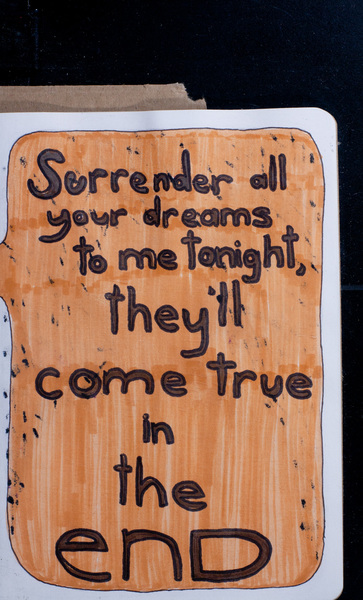 Surrender all
your dreams
to me tonight,
they'll
come true
in
the
enD